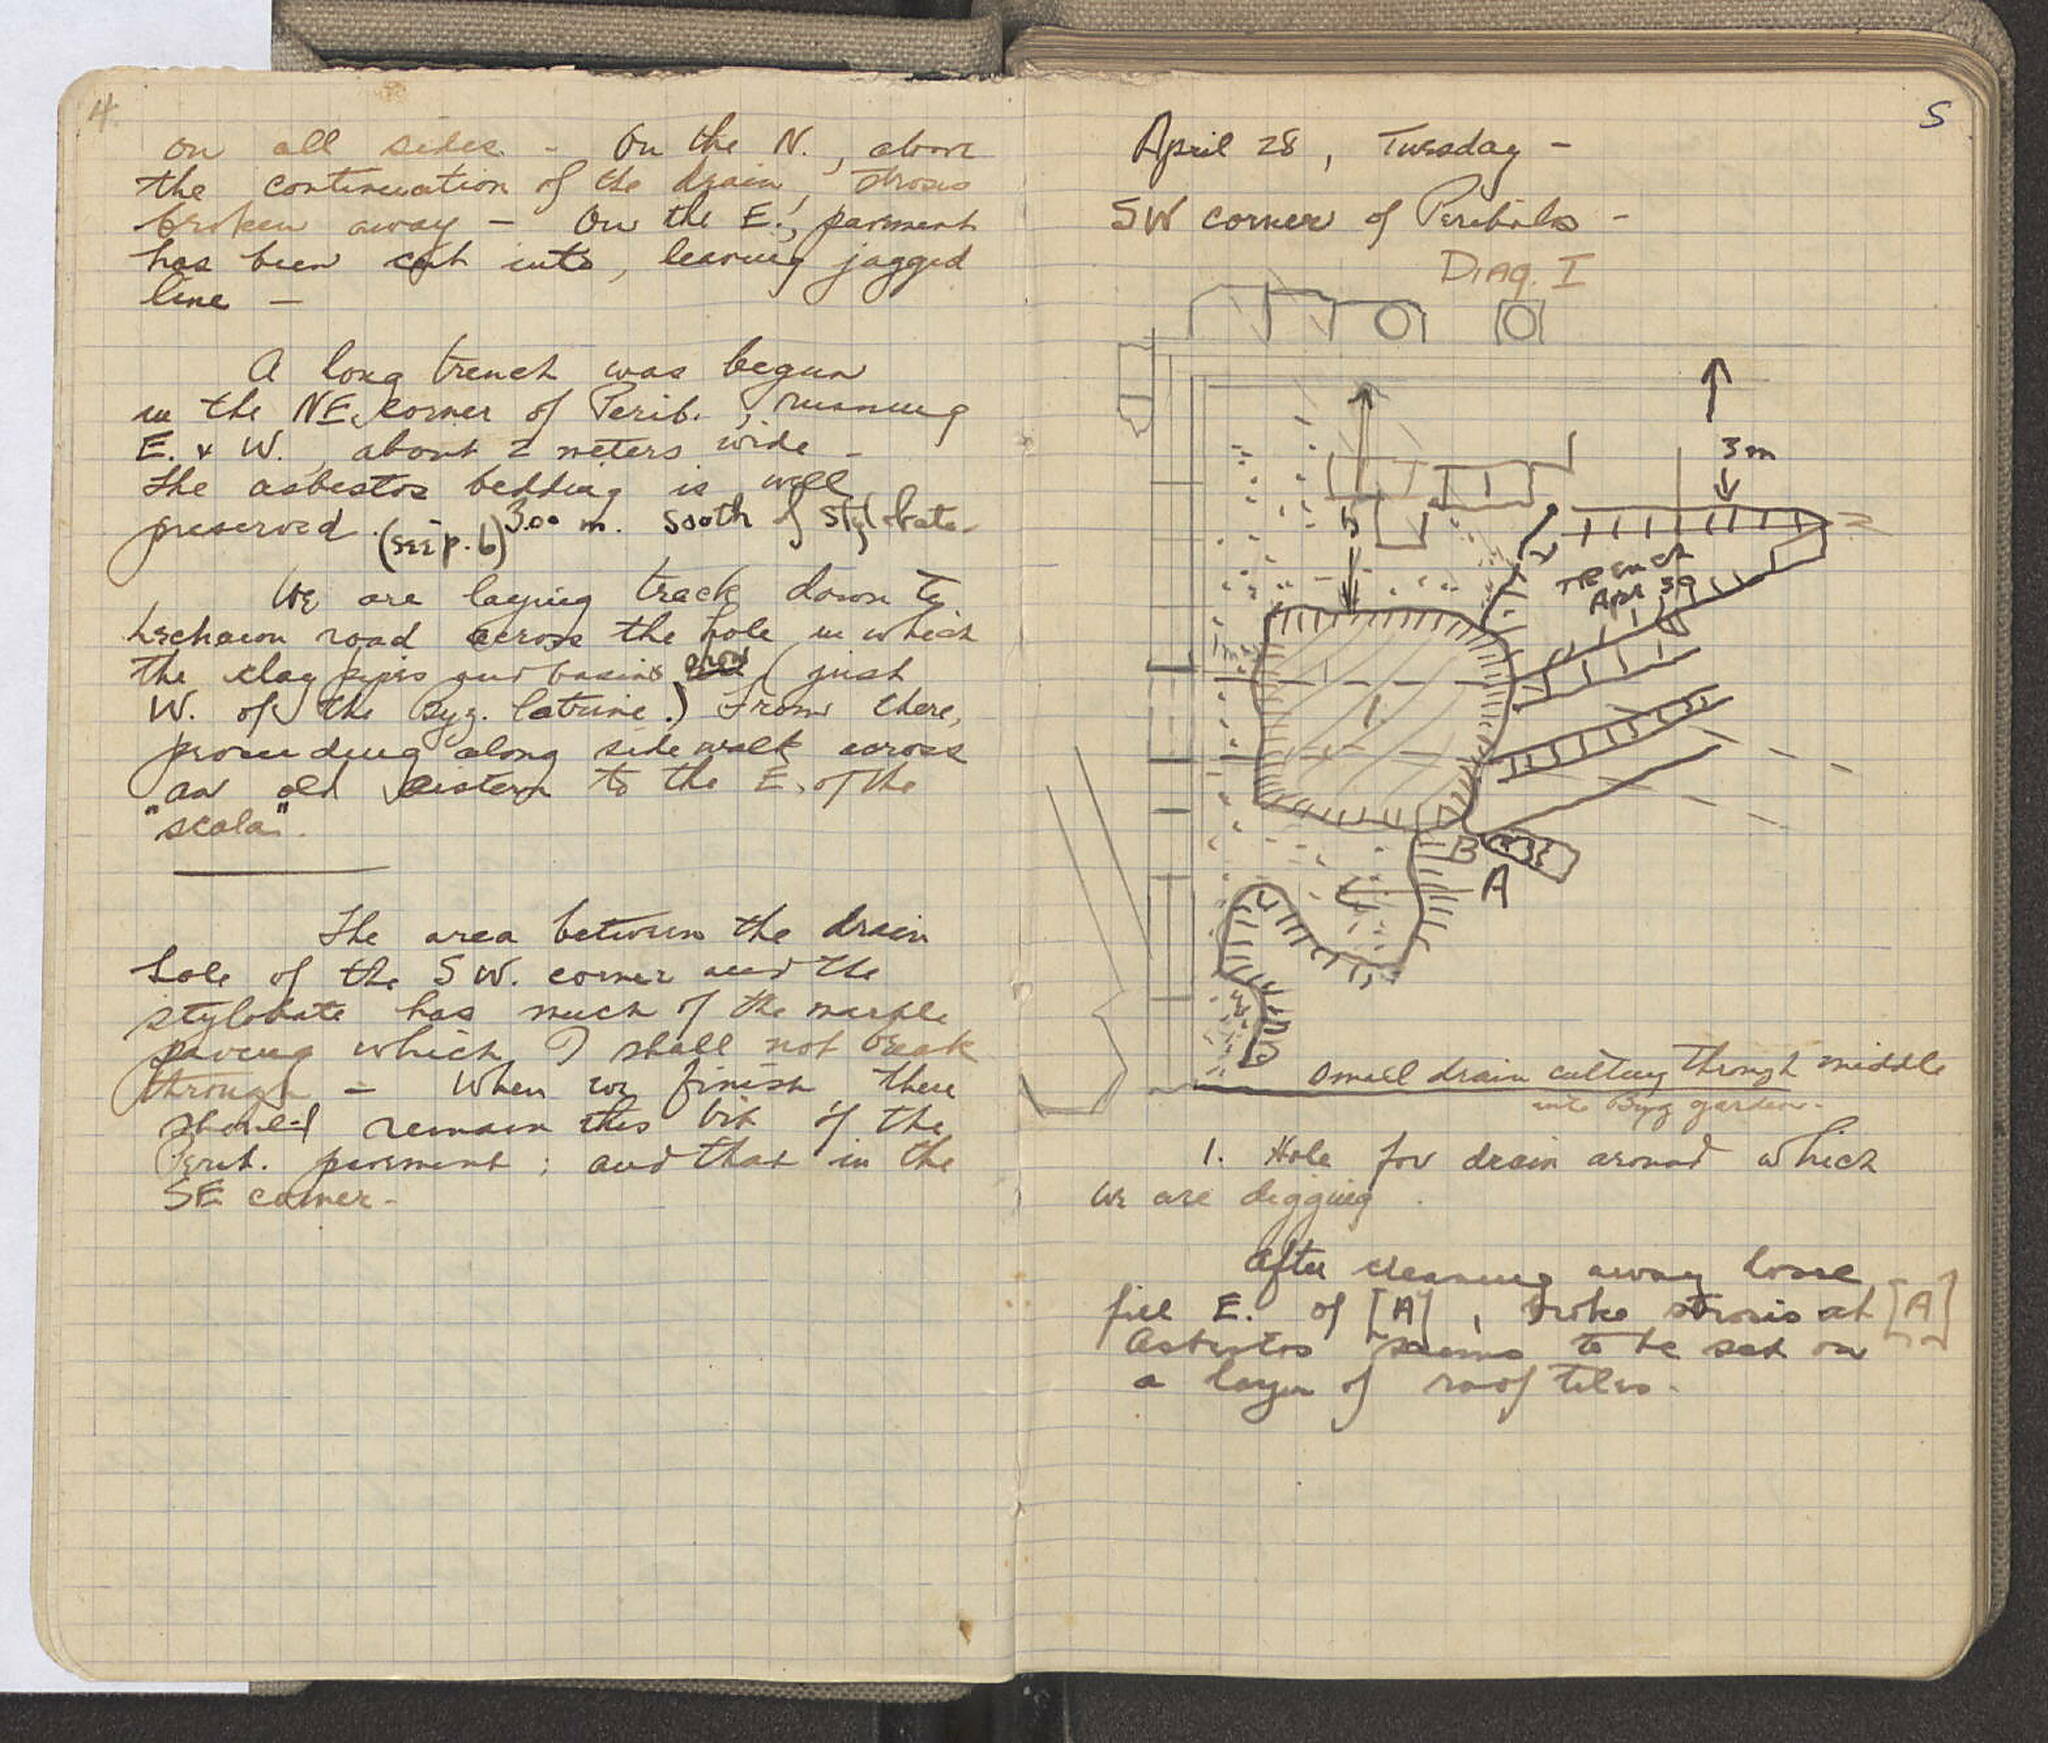 4
on all sides. - On the N., above
the continuation of the drain, stroses
broken away - On the E., pavement
has been cut into, leaving jagged
line -
A long trench was begun
in the NE. corner of Perib., running
E. & W., about 2 meters wide -
The asbestos bedding is well
preserved. (see p. 6) 3.00 m. south of stylobate -
We are laying track down to
Lechaeon road across the hole in which
the clay pipes and basins (just
W. of the Byz. latrine.) From there,
proceeding along sidewalk across
an old cistern to the E. of the
"scala".
The area between the drain
hole of the SW. corner and the
stylobate has much of the marble
paving which I shall not break
through - When we finish there
should remain this bit of the
Perib. pavement; and that in the
SE corner -
5
April 28, Tuesday -
SW corner of Peribolos -
Diag. I
3m
Trench
Apr 39
1
B
A
C
D
small drain cutting through middle
into Byz garden -
1. Hole for drain around which
we are digging.
After cleaning away loose
fill E. of [A], broke strosis at [A]
Asbestos seems to be set on
a layer of roof tiles -